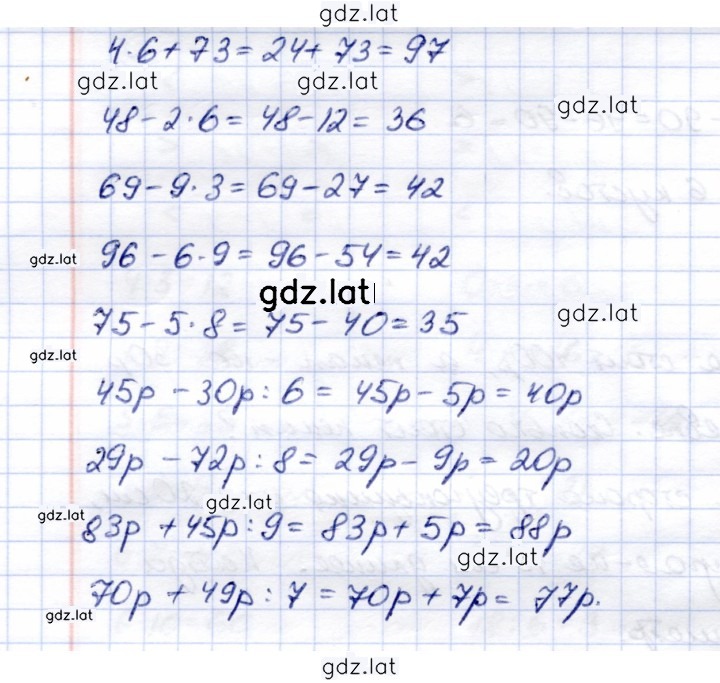 gdz.lat
4·6+73=24+73=97
gdz.lat gdz.lat
48-2·6=48-12=36 gdz.lat
69-9·3=69-27=42
gdz.lat 96-6·9=96-54=42
gdz.lat
75-5·8=75-40=35 gdz.lat
gdz.lat
45р-30р:6=45р-5р=40р
29р-72р:8=29р-9р=20р
gdz.lat
gdz.lat 83р+45р:9=83р+5р=88р
gdz.lat
70р+49р:7=70р+7р=77р.
gdz.lat
gdz.lat